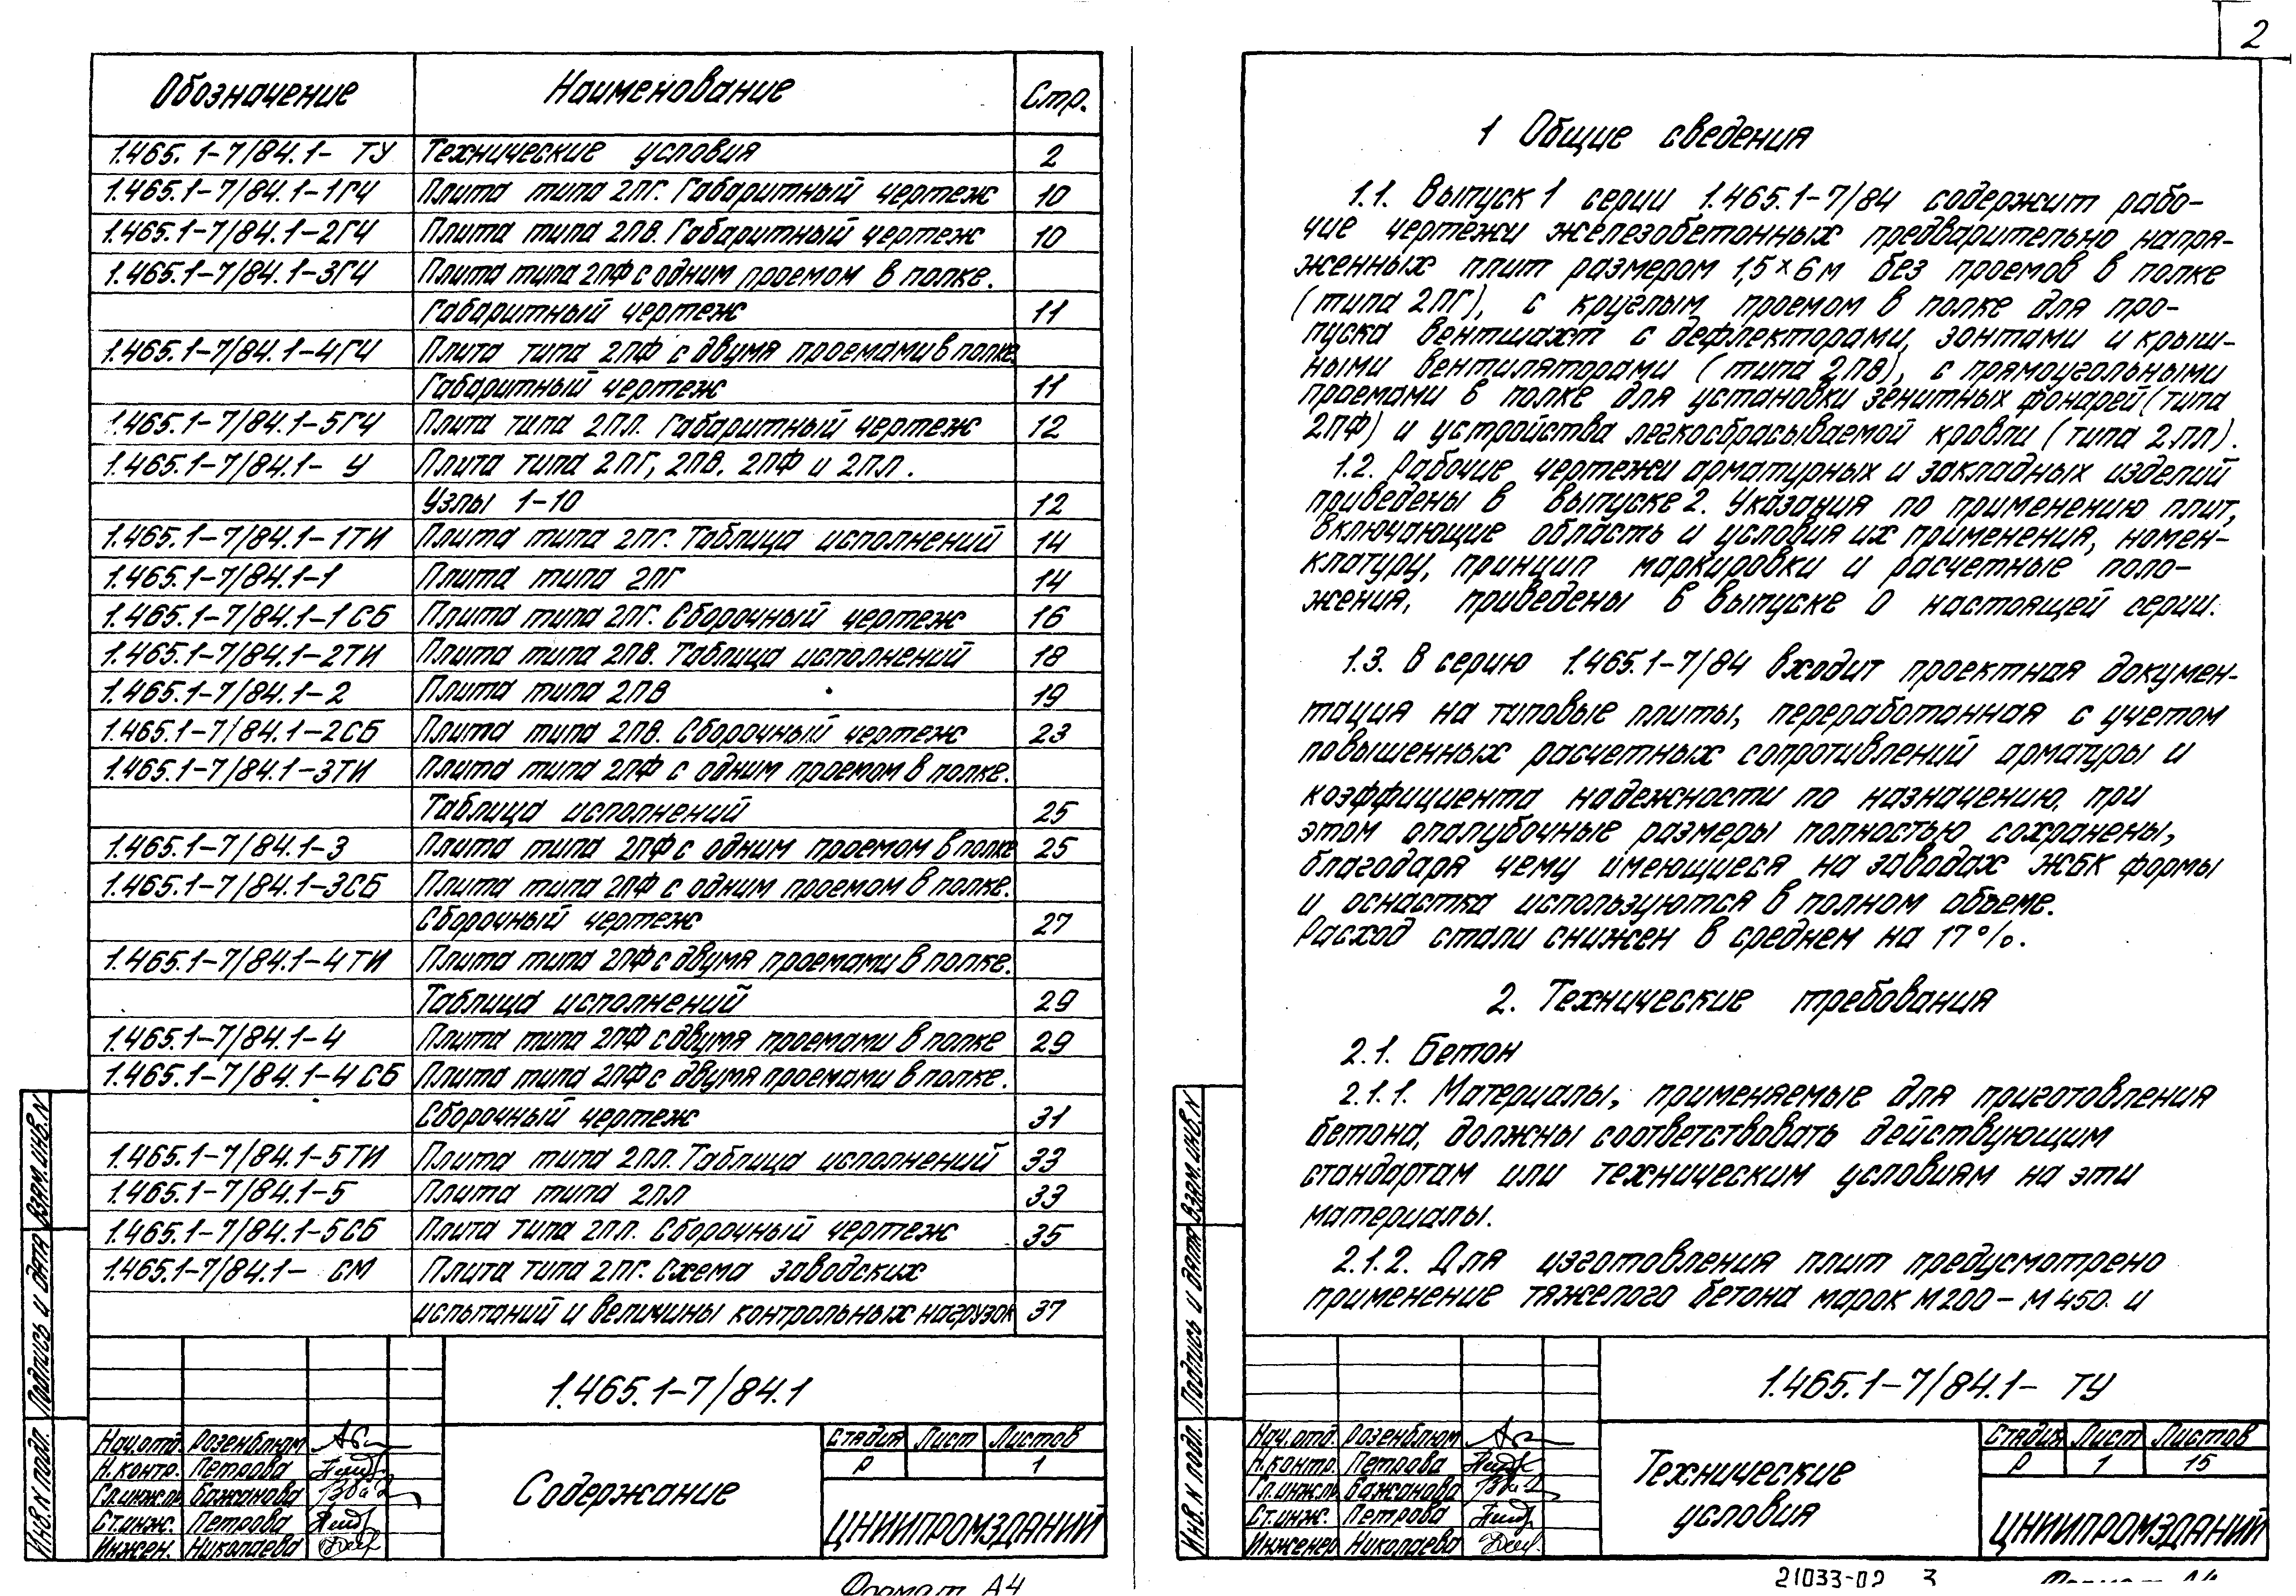 Обозначение Наименование Стр.
1.465.1-7/84.1- ТУ Технические условия 2
1.465.1-7/84.1-1ГЧ Плита типа 2ПГ. Габаритный чертеж 10
1.465.1-7/84.1-2ГЧ Плита типа 2ПВ. Габаритный чертеж 10
1.465.1-7/84.1-3ГЧ Плита типа 2ПФ с одним проемом в полке.
Габаритный чертеж 11
1.465.1-7/84.1-4ГЧ Плита типа 2ПФ с двумя проемами в полке.
Габаритный чертеж 11
1.465.1-7/84.1-5ГЧ Плита типа 2ПЛ. Габаритный чертеж 12
1.465.1-7/84.1- У Плита типа 2ПГ, 2ПВ. 2ПФ и 2ПЛ.
Узлы 1-10 12
1.465.1-7/84.1-1ТИ Плита типа 2ПГ. Таблица исполнений 14
1.465.1-7/84.1-1 Плита типа 2ПГ 14
1.465.1-7/84.1-1СБ Плита типа 2ПГ. Сборочный чертеж 16
1.465.1-7/84.1-2ТИ Плита типа 2ПВ. Таблица исполнений 18
1.465.1-7/84.1-2 Плита типа 2ПВ 19
1.465.1-7/84.1-2СБ Плита типа 2ПВ. Сборочный чертеж 23
1.465.1-7/84.1-3ТИ Плита типа 2ПФ с одним проемом в полке.
Таблица исполнений 25
1.465.1-7/84.1-3 Плита типа 2ПФ с одним проемом в полке 25
1.465.1-7/84.1-3СБ Плита типа 2ПФ с одним проемом в полке.
Сборочный чертеж 27
1.465.1-7/84.1-4ТИ Плита типа 2ПФ с двумя проемами в полке.
Таблица исполнений 29
1.465.1-7/84.1-4 Плита типа 2ПФ с двумя проемами в полке 29
1.465.1-7/84.1-4СБ Плита типа 2ПФ с двумя проемами в полке.
Сборочный чертеж 31
1.465.1-7/84.1-5ТИ Плита типа 2ПЛ. Таблица исполнений 33
1.465.1-7/84.1-5 Плита типа 2ПЛ 33
1.465.1-7/84.1-5СБ Плита типа 2ПЛ. Сборочный чертеж 35
1.465.1-7/84.1- СМ Плита типа 2ПГ. Схема заводских
испытаний и величины контрольных нагрузок 37
1.465.1-7/84.1
Нач.отд. Розенблюм
Н.контр. Петрова
Гл.инж.пр. Бажанова
Ст.инж. Петрова
Инжен. Николаева
Содержание
Стадия Лист Листов
Р 1
ЦНИИПРОМЗДАНИЙ
Инв.N подл. Подпись и дата Взам.инв.N
Формат А4
2
1 Общие сведения
1.1. Выпуск 1 серии 1.465.1-7/84 содержит рабо-
чие чертежи железобетонных предварительно напря-
женных плит размером 1,5×6м без проемов в полке
(типа 2ПГ), с круглым проемом в полке для про-
пуска вентшахт с дефлекторами, зонтами и крыш-
ными вентиляторами (типа 2ПВ), с прямоугольными
проемами в полке для установки зенитных фонарей (типа
2ПФ) и устройства легкосбрасываемой кровли (типа 2ПЛ).
1.2. Рабочие чертежи арматурных и закладных изделий
приведены в выпуске 2. Указания по применению плит,
включающие область и условия их применения, номен-
клатуру, принцип маркировки и расчетные поло-
жения, приведены в выпуске 0 настоящей серии.
1.3. В серию 1.465.1-7/84 входит проектная докумен-
тация на типовые плиты, переработанная с учетом
повышенных расчетных сопротивлений арматуры и
коэффициента надежности по назначению, при
этом опалубочные размеры полностью сохранены,
благодаря чему имеющиеся на заводах ЖБК формы
и оснастка используются в полном объеме.
Расход стали снижен в среднем на 17%.
2. Технические требования
2.1. Бетон
2.1.1. Материалы, применяемые для приготовления
бетона, должны соответствовать действующим
стандартам или техническим условиям на эти
материалы.
2.1.2. Для изготовления плит предусмотрено
применение тяжелого бетона марок М200-М450 и
1.465.1-7/84.1- ТУ
Нач.отд. Розенблюм
Н.контр. Петрова
Гл.инж.пр. Бажанова
Ст.инж. Петрова
Инженер Николаева
Технические
условия
Стадия Лист Листов
Р 1 15
ЦНИИПРОМЗДАНИЙ
Инв.N подл. Подпись и дата Взам.инв.N
21033-02 3
Формат А4